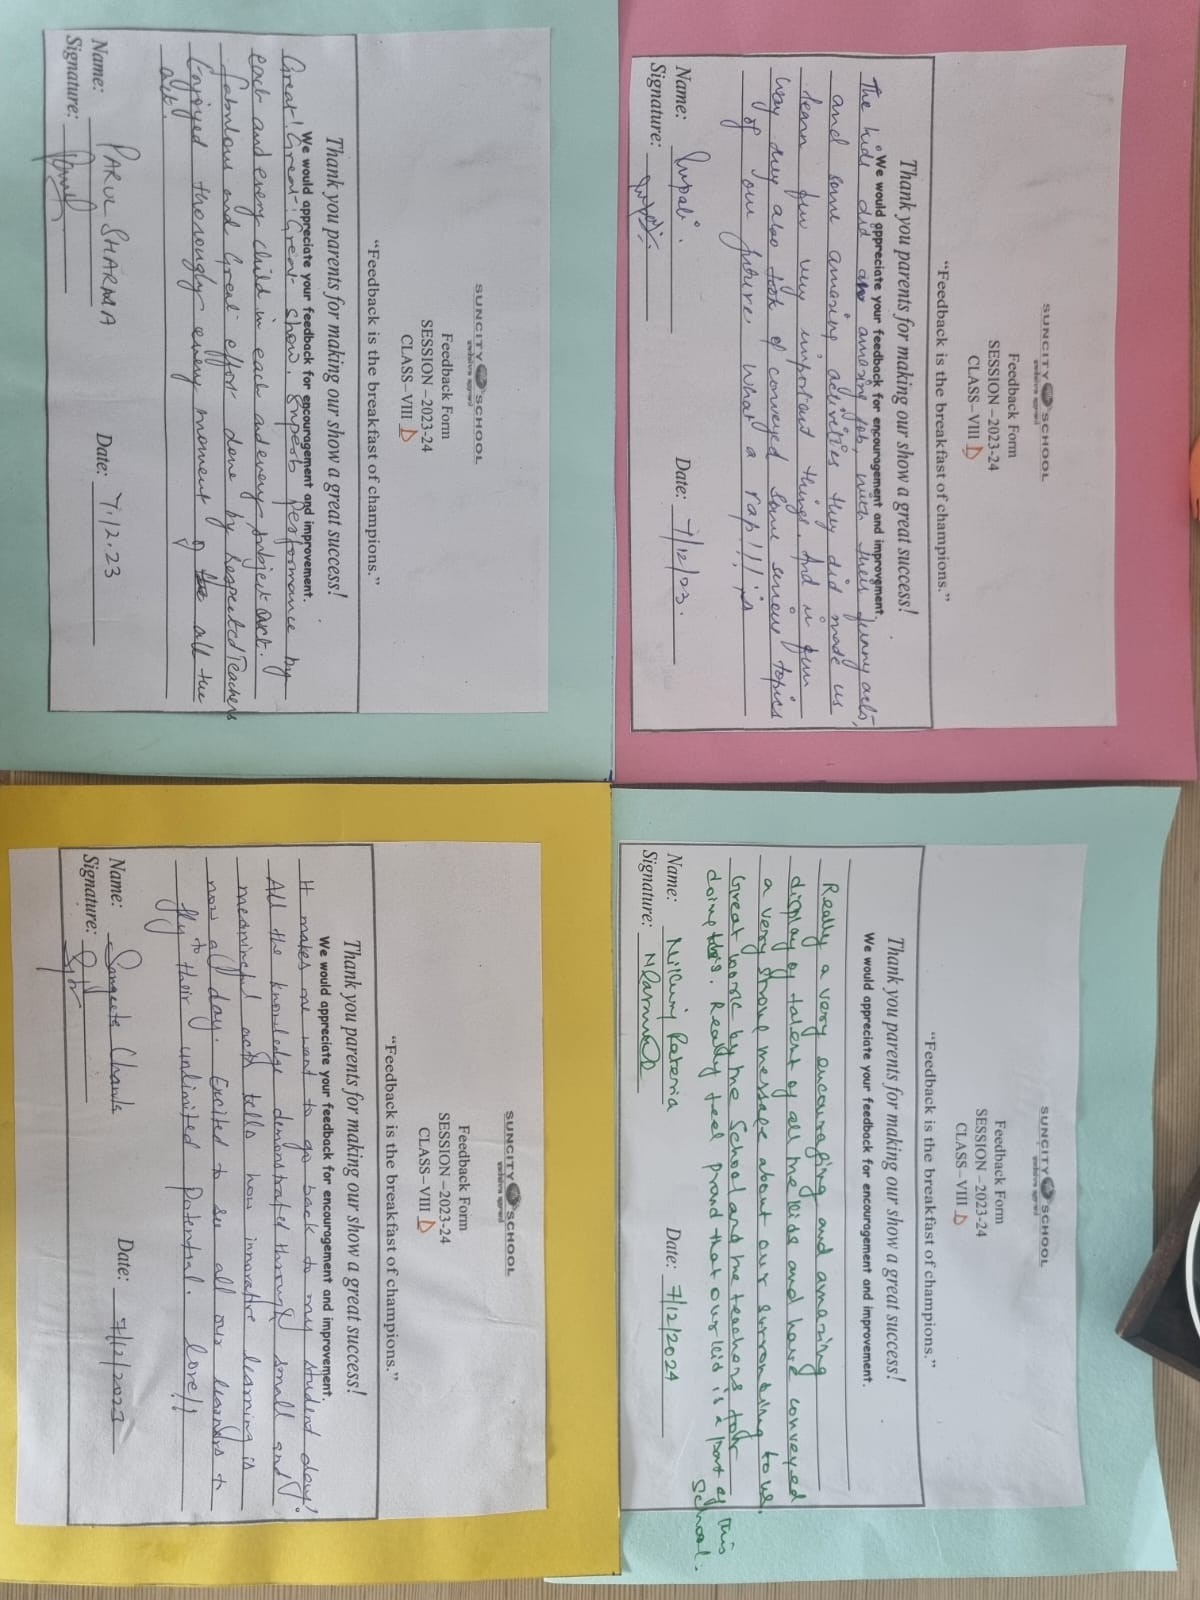 SUNCITY SCHOOL
Feedback Form
SESSION – 2023-24
CLASS – VIII D
"Feedback is the breakfast of champions."
Thank you parents for making our show a great success!
We would appreciate your feedback for encouragement and improvement.
Great! Great! Great show. Superb performance by
each and every child in each and every subject act.
Fabulous and Great effort done by Respected Teachers
Enjoyed thorougly every moment of all the
act.
Name: PARUL SHARMA Date: 7.12.23
Signature:
SUNCITY SCHOOL
Feedback Form
SESSION – 2023-24
CLASS – VIII D
"Feedback is the breakfast of champions."
Thank you parents for making our show a great success!
We would appreciate your feedback for encouragement and improvement.
The kids did an amazing job, with their funny acts,
and some amazing activities they did made us
learn few very important things. And in fun
way they also took & conveyed some serious topics
of our future. What a rap!!!
Name: Rupali. Date: 7/12/23.
Signature:
SUNCITY SCHOOL
Feedback Form
SESSION – 2023-24
CLASS – VIII D
"Feedback is the breakfast of champions."
Thank you parents for making our show a great success!
We would appreciate your feedback for encouragement and improvement.
It makes me want to go back to my student days!
All the knowledge demonstrated through small and
meaningful acts tells how innovative learning is
now a days. Excited to see all our learners
fly to their unlimited potential. Love!!
Name: Sangeeta Chawla Date: 7/12/2023
Signature:
SUNCITY SCHOOL
Feedback Form
SESSION – 2023-24
CLASS – VIII D
"Feedback is the breakfast of champions."
Thank you parents for making our show a great success!
We would appreciate your feedback for encouragement and improvement.
Really a very encouraging and amazing
display of talent of all the kids and have conveyed
a very strong message about our surrounding to us.
Great work by the School and the teachers for
doing this. Really feel proud that our kid is a part of this
School.
Name: Date: 7/12/2024
Signature: